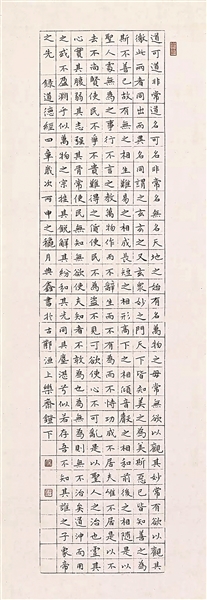 道可道非常道名可名非常名無名天地之始有名萬物之母常無欲以觀其妙常有欲以觀其
徼此兩者同出而異名同謂之玄之又玄眾妙之門天下皆知美之為美斯惡已皆知善之為善
斯不善已故有無之相生難易之相成長短之相形高下之相傾音聲之相和前後之相隨是以
聖人處無為之事行不言之教萬物作而不辭生而不有為而不恃功成不居夫唯不居是以不
去不尚賢使民不爭不貴難得之貨使民不為盜不見可欲使心不可亂是以聖人之治也虛其
心實其腹弱其志強其骨常使民無知無欲使夫知者不敢為也為無為則無不治矣道沖而用
之或不盈淵乎似萬物之宗挫其銳解其紛和其光同其塵湛兮似若存吾不知其誰之子象帝
之先 錄道德經四章歲次丙申之穐月典鑫書於古海上樂齋鐙下